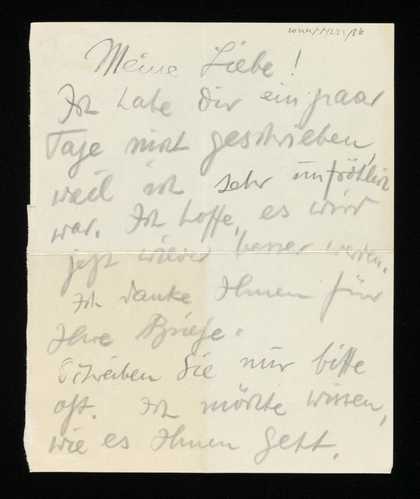 Meine Liebe!
Ich habe Dir ein paar
Tage nicht geschrieben,
weil ich sehr unfröhlich
war. Ich hoffe, es wird
jetzt wieder besser werden.
Ich danke Ihnen für
Ihre Briefe.
Schreiben Sie mir bitte
oft. Ich möchte wissen,
wie es Ihnen geht.